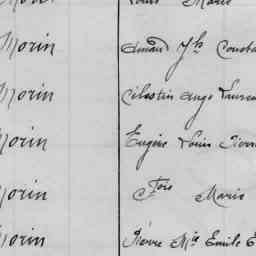 Morin Louis Marie
Morin Armand Jh Constant
Morin Célestin Ange Laurent
Morin Eugène Louis Pierre
Morin Fçois Marie
Morin Pierre Mie Emile